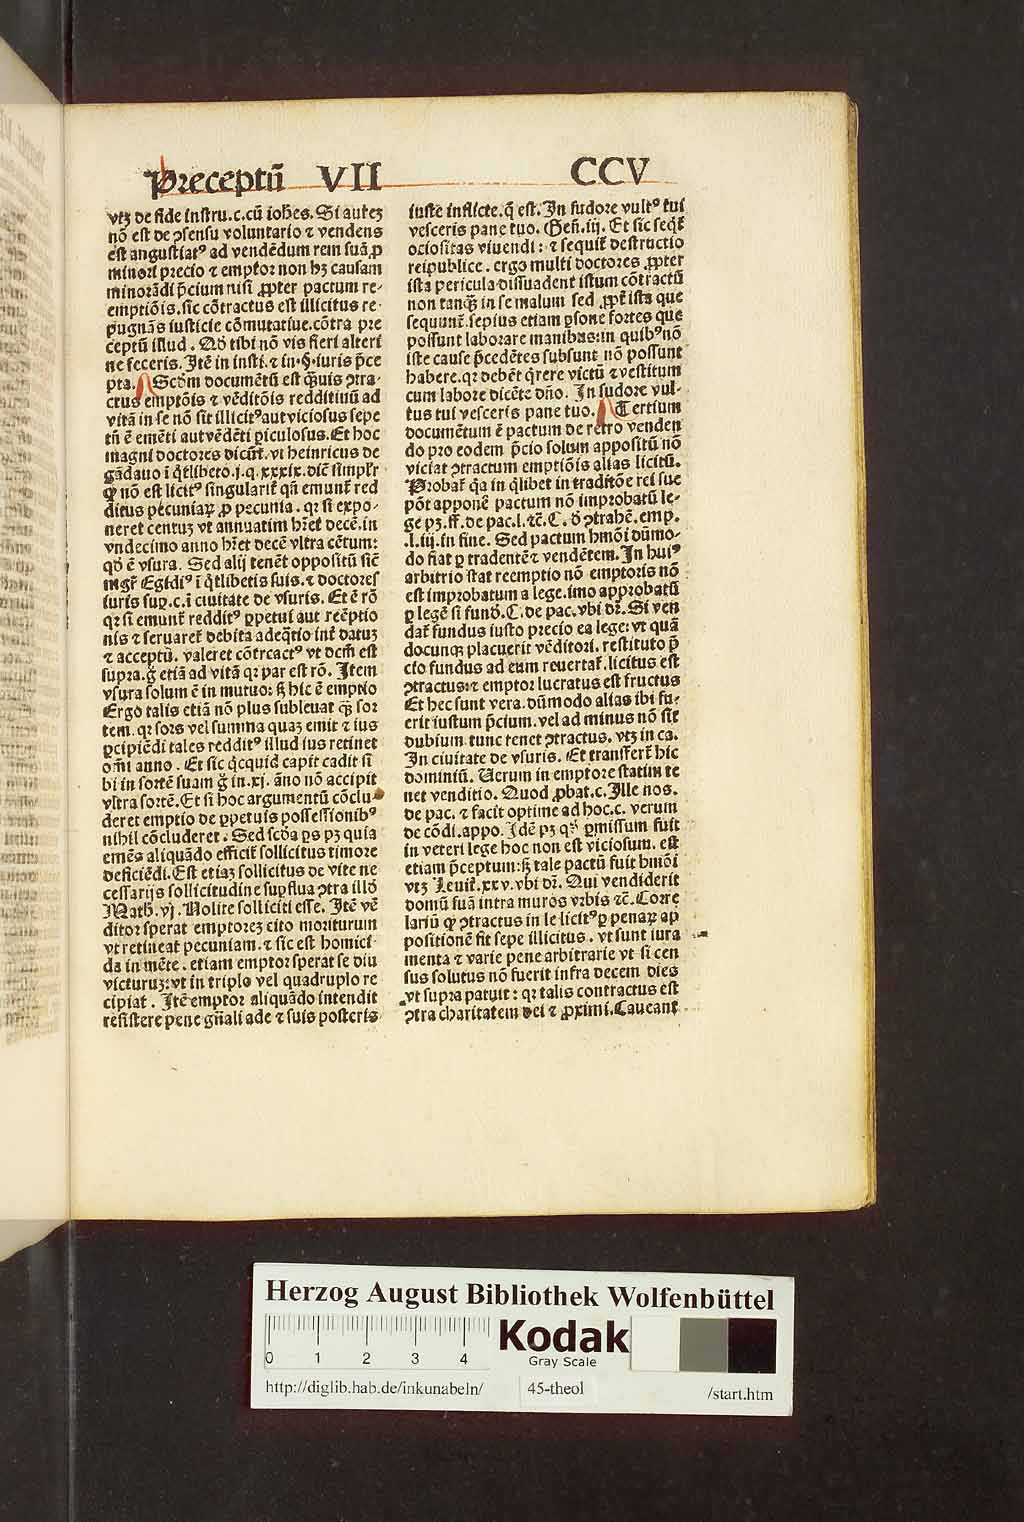 Preceptū VII CCV
vtꝫ de fide instru.c.cū ioh̄es. Si autē
nō est de ↄsensu voluntario ⁊ vendens
est angustiatꝰ ad vendēdum rem suā ꝓ
minori precio ⁊ emptor non hꝫ causam
minorādi p̄cium nisi ꝓpter pactum re-
emptiōis. sic cōtractus est illicitus re-
pugnās iusticie cōmutatiue. cōtra pre
ceptū illud. Qd̄ tibi nō vis fieri alteri
ne feceris. Itē in insti. ⁊ in .§. iuris p̄ce
pta. Scd̄m documētū est qꝫuis ↄtra-
ctus emptōis ⁊ vēditōis reddituū ad
vitā in se nō sit illicitꝰ aut viciosus sepe
tn̄ ē emēti aut vēdēti ꝑiculosus. Et hoc
magni doctores dicūt. vt heinricus de
gādauo ī q̄tlibeto.j.q.xxxix. dic̄ simplr̄
ꝙ nō est licitꝰ singularit̄ qn̄ emunt̄ red
ditus pecuniaꝝ ꝓ pecunia. qꝛ si expo-
neret centuꝫ vt annuatim hr̄et decē. in
vndecimo anno hr̄et decē vltra cētum:
qd̄ ē vsura. Sed alij tenēt oppositū sic̄
mgr̄ Egidiꝰ ī q̄tlibetis suis. ⁊ doctores
iuris suꝑ.c.ī ciuitate de vsuris. Et ē rō
qꝛ si emunt̄ redditꝰ ꝑpetui aut reēptio
nis ⁊ seruaret̄ debita adeq̄tio int̄ datuꝫ
⁊ acceptū. valeret cōtrcactꝰ vt dcm̄ est
supra. g̈ etiā ad vitā qꝛ par est rō. Item
vsura solum ē in mutuo: sꝫ hic ē emptio
Ergo talis etiā nō plus subleuat qꝫ sor
tem. qꝛ sors vel summa quaꝫ emit ē ius
ꝑcipiēdi tales redditꝰ illud ius retinet
om̄i anno. Et sic q̇cquid capit cadit si
bi in sortē suam g̈ in.xj. āno nō accipit
vltra sortē. Et si hoc argumentū cōclu
deret emptio de ꝑpetuis possessionibꝰ
nihil cōcluderet. Sed scd̄a ꝑs pꝫ quia
emēs aliquādo efficit̄ sollicitus timore
deficiēdi. Est etiaꝫ sollicitus de vite ne
cessarijs sollicitudine supflua ↄtra illd̄
Math̄.vj. Nolite solliciti esse. Itē vē
ditor sperat emptoreꝫ cito moriturum
vt retineat pecuniam. ⁊ sic est homici-
da in mēte. etiam emptor sperat se diu
victuruꝫ: vt in triplo vel quadruplo re
cipiat. Itē emptor aliquādo intendit
resistere pene gn̄ali ade ⁊ suis posteris
iuste inflicte. q̄ est. In sudore vultꝰ tui
vesceris pane tuo. Gen̄.iij. Et sic seqt̄
ociositas viuendi: ⁊ sequit̄ destructio
reipublice. ergo multi doctores ꝓpter
ista pericula dissuadent istum cōtractū
non tanqꝫ in se malum sed ꝓpt̄ ista que
sequunt̄. sepius etiam ꝑsone fortes que
possunt laborare manibus: in quibꝰ nō
iste cause p̄cedētes subsunt nō possunt
habere. qꝛ debēt q̄rere victū ⁊ vestitum
cum labore dicēte dn̄o. In sudore vul-
tus tui vesceris pane tuo. Tertium
documētum ē pactum de retro venden
do pro eodem p̄cio solum appositū nō
viciat ↄtractum emptiōis alias licitū.
Probat̄ q̄a in q̄libet in traditōe rei sue
pōt apponē pactum nō improbatū le-
ge pꝫ.ff.de pac.l.⁊c̄.C.d̄ ↄtrahē.emp.
.l.iij.in fine. Sed pactum hmōi dūmo-
do fiat ꝑ tradentē ⁊ vendētem. In huiꝰ
arbitrio stat reemptio nō emptoris nō
est improbatum a lege. imo approbatū
ꝑ legē si fund̄.C.de pac.vbi dr̄. Si ven
dat̄ fundus iusto precio ea lege: vt quā
docunqꝫ placuerit vēditori. restituto p̄
cio fundus ad eum reuertat̄. licitus est
ↄtractus: ⁊ emptor lucratus est fructus
Et hec sunt vera. dūmodo alias ibi fu-
erit iustum p̄cium. vel ad minus nō sit
dubium tunc tenet ↄtractus. vtꝫ in ca.
In ciuitate de vsuris. Et transfert̄ hic
dominiū. Uerum in emptore statim te
net venditio. Quod ꝓbat.c. Ille nos.
de pac. ⁊ facit optime ad hoc.c. verum
de cōdi.appo. Idē pꝫ qꝛ ꝑmissum fuit
in veteri lege hoc non est viciosum. est
etiam p̄ceptum: sꝫ tale pactū fuit hmōi
vtꝫ Leuit̄.xxv.vbi dr̄. Qui vendiderit
domū suā intra muros vrbis ⁊c̄. Corre
lariū ꝙ ↄtractus in se licitꝰ ꝑ penaꝝ ap
positionē fit sepe illicitus. vt sunt iura
menta ⁊ varie pene arbitrarie vt si cen
sus solutus nō fuerit infra decem dies
vt supra patuit: qꝛ talis contractus est
ↄtra charitatem dei ⁊ ꝓximi. Caueant
Herzog August Bibliothek Wolfenbüttel
0 1 2 3 4
Kodak
Gray Scale
http://diglib.hab.de/inkunabeln/ 45-theol /start.htm